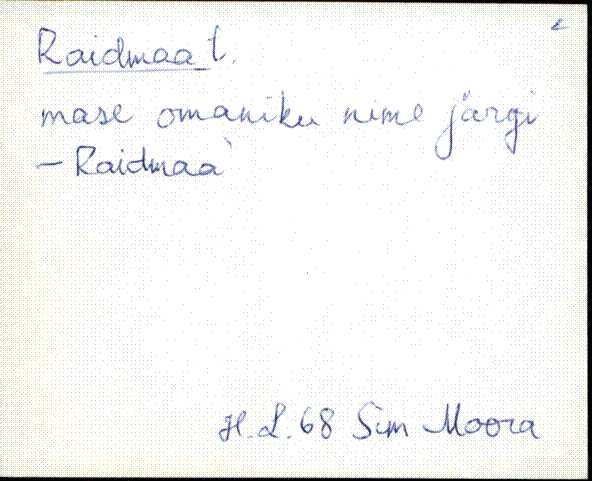 Raidmaa t.
mase omaniku nime järgi
– Raidmaa
H. L. 68 Sim Moora